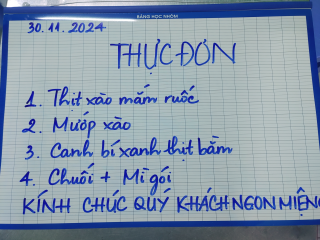 BẢNG HỌC NHÓM
30.11.2024
THỰC ĐƠN
1. Thịt xào mắm ruốc
2. Mướp xào
3. Canh bí xanh thịt bằm
4. Chuối + Mì gói
KÍNH CHÚC QUÝ KHÁCH NGON MIỆNG